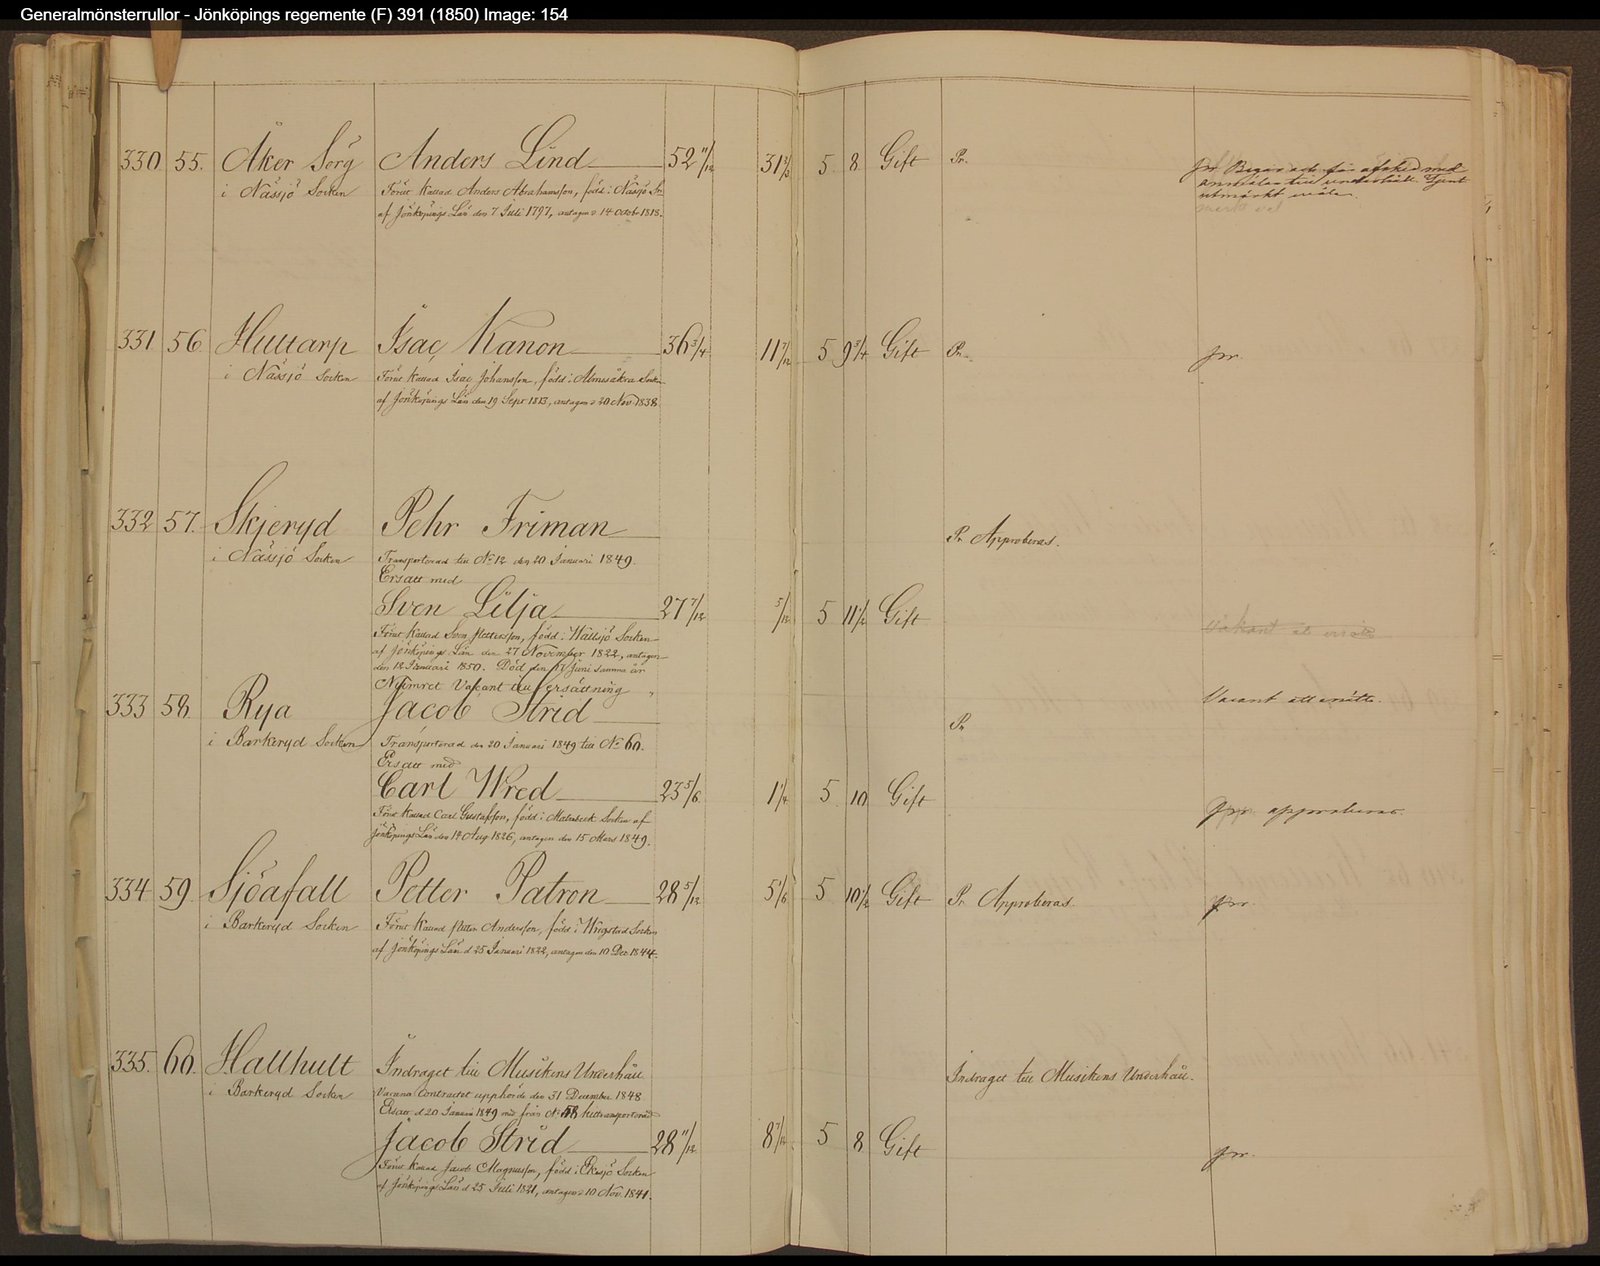 Generalmönsterrullor - Jönköpings regemente (F) 391 (1850) Image: 154
330 55. Åker Sörg Anders Lind 52 11/12 31 2/3 5 8 Gift Pr.
i Nässjö Socken Förut Kallad Anders Abrahamsson, född i Nässjö Sn
af Jönköpings Län den 7 Juli 1797, antagen d 14 Octobr 1818.
pr. Begär och får afsked med
anmälan till underhåll. Tjent
utmärkt wäl.
331 56 Huttarp Isac Kanon 36 3/4 11 7/12 5 9 3/4 Gift Pr. pr.
i Nässjö Socken Förut Kallad Isac Johansson, född i Almesåkra Socken
af Jönköpings Län den 19 Sept 1813, antagen d 20 Nov. 1838
332 57. Skjeryd Pehr Friman Pr. Approberas.
i Nässjö Socken Transporterad till No 12 den 20 Januari 1849.
Ersatt med
Sven Lilja 27 7/12 5/12 5 11 1/2 Gift
Förut Kallad Sven Pettersson, född i Wallsjö Socken
af Jönköpings Län den 27 November 1822, antagen
den 12 Januari 1850. Död den 17 Juni samma år
Numret Vakant till ersättning
Vakant at ersätta
Vacant att ersätta.
333 58. Rya Jacob Strid Pr.
i Barkeryd Socken Transporterad den 20 Januari 1849 till No 60.
Ersatt med
Carl Wred 23 5/6 1 1/4 5 10 Gift pr. approberas.
Förut Kallad Carl Gustafsson, född i Malmbeck Socken af
Jönköpings Län den 14 Aug 1826, antagen den 15 Mars 1849.
334 59. Sjöafall Petter Patron 28 5/12 5 1/6 5 10 1/2 Gift Pr. Approberas. pr.
i Barkeryd Socken Förut Kallad Petter Andersson, född i Wrigstad Socken
af Jönköpings Län d 25 Januari 1822, antagen den 10 Dec. 1844.
335. 60. Hallhult Indraget till Musikens Underhåll Indraget till Musikens Underhåll.
i Barkeryd Socken Vacans Contractet upphörde den 31 December 1848
Ersatt d 20 Januari 1849 med från No 58 hittransporterad
Jacob Strid 28 11/12 8 7/12 5 8 Gift pr.
Förut Kallad Jacob Magnusson, född i Eksjö Socken
af Jönköpings Län d 25 Juli 1821, antagen d 10 Nov. 1841.